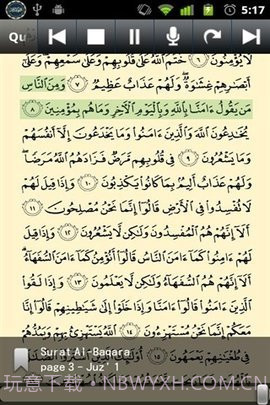 5:17
Qu
لَا يُؤْمِنُونَ ٦ خَتَمَ ٱللَّهُ عَلَىٰ قُلُوبِهِمْ وَعَلَىٰ سَمْعِهِمْ وَعَلَىٰٓ
أَبْصَٰرِهِمْ غِشَٰوَةٌ وَلَهُمْ عَذَابٌ عَظِيمٌ ٧ وَمِنَ ٱلنَّاسِ
مَن يَقُولُ ءَامَنَّا بِٱللَّهِ وَبِٱلْيَوْمِ ٱلْءَاخِرِ وَمَا هُم بِمُؤْمِنِينَ ٨
يُخَٰدِعُونَ ٱللَّهَ وَٱلَّذِينَ ءَامَنُوا۟ وَمَا يَخْدَعُونَ إِلَّآ أَنفُسَهُمْ
وَمَا يَشْعُرُونَ ٩ فِى قُلُوبِهِم مَّرَضٌ فَزَادَهُمُ ٱللَّهُ مَرَضًا
وَلَهُمْ عَذَابٌ أَلِيمٌۢ بِمَا كَانُوا۟ يَكْذِبُونَ ١٠ وَإِذَا قِيلَ لَهُمْ
لَا تُفْسِدُوا۟ فِى ٱلْأَرْضِ قَالُوٓا۟ إِنَّمَا نَحْنُ مُصْلِحُونَ ١١
أَلَآ إِنَّهُمْ هُمُ ٱلْمُفْسِدُونَ وَلَٰكِن لَّا يَشْعُرُونَ ١٢ وَإِذَا قِيلَ
لَهُمْ ءَامِنُوا۟ كَمَآ ءَامَنَ ٱلنَّاسُ قَالُوٓا۟ أَنُؤْمِنُ كَمَآ ءَامَنَ ٱلسُّفَهَآءُ
أَلَآ إِنَّهُمْ هُمُ ٱلسُّفَهَآءُ وَلَٰكِن لَّا يَعْلَمُونَ ١٣ وَإِذَا لَقُوا۟
ٱلَّذِينَ ءَامَنُوا۟ قَالُوٓا۟ ءَامَنَّا وَإِذَا خَلَوْا۟ إِلَىٰ شَيَٰطِينِهِمْ قَالُوٓا۟ إِنَّا
مَعَكُمْ إِنَّمَا نَحْنُ مُسْتَهْزِءُونَ ١٤ ٱللَّهُ يَسْتَهْزِئُ بِهِمْ وَيَمُدُّهُمْ
فِى طُغْيَٰنِهِمْ يَعْمَهُونَ ١٥
Surat Al-Baqara
page 3 - Juz' 1
玩意下载 · NBWYXH.COM.CN